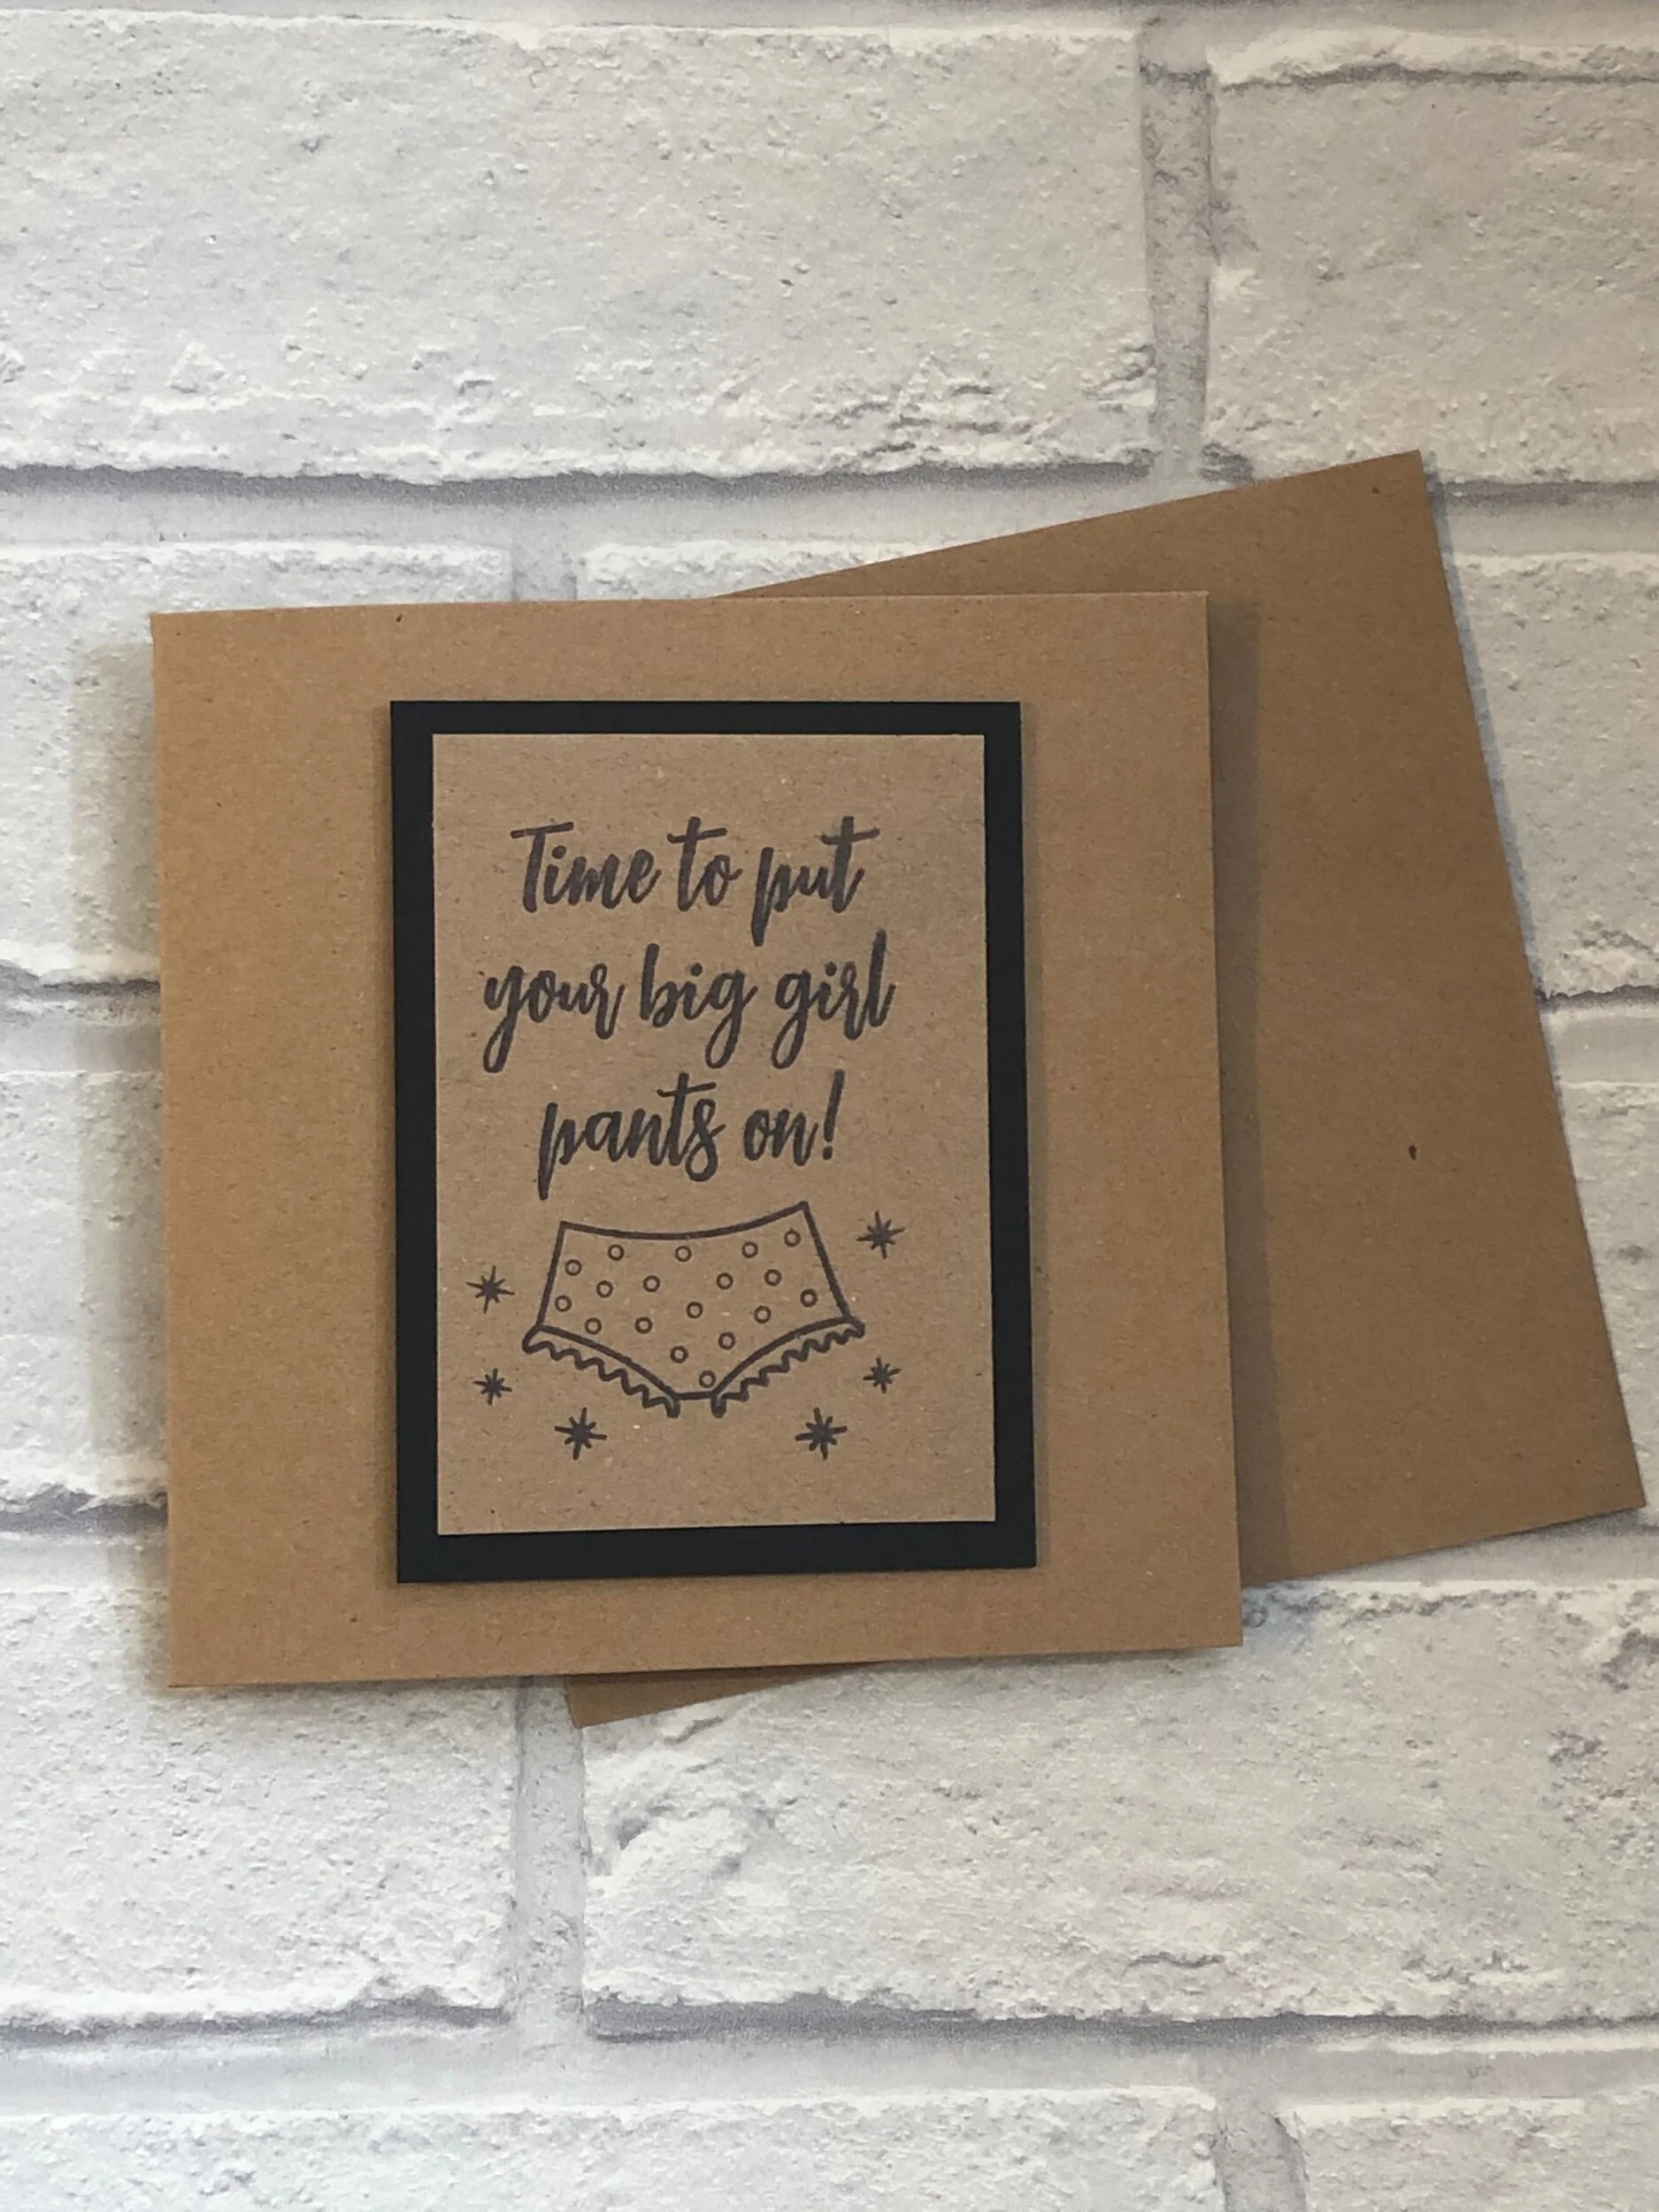 Time to put
your big girl
pants on!